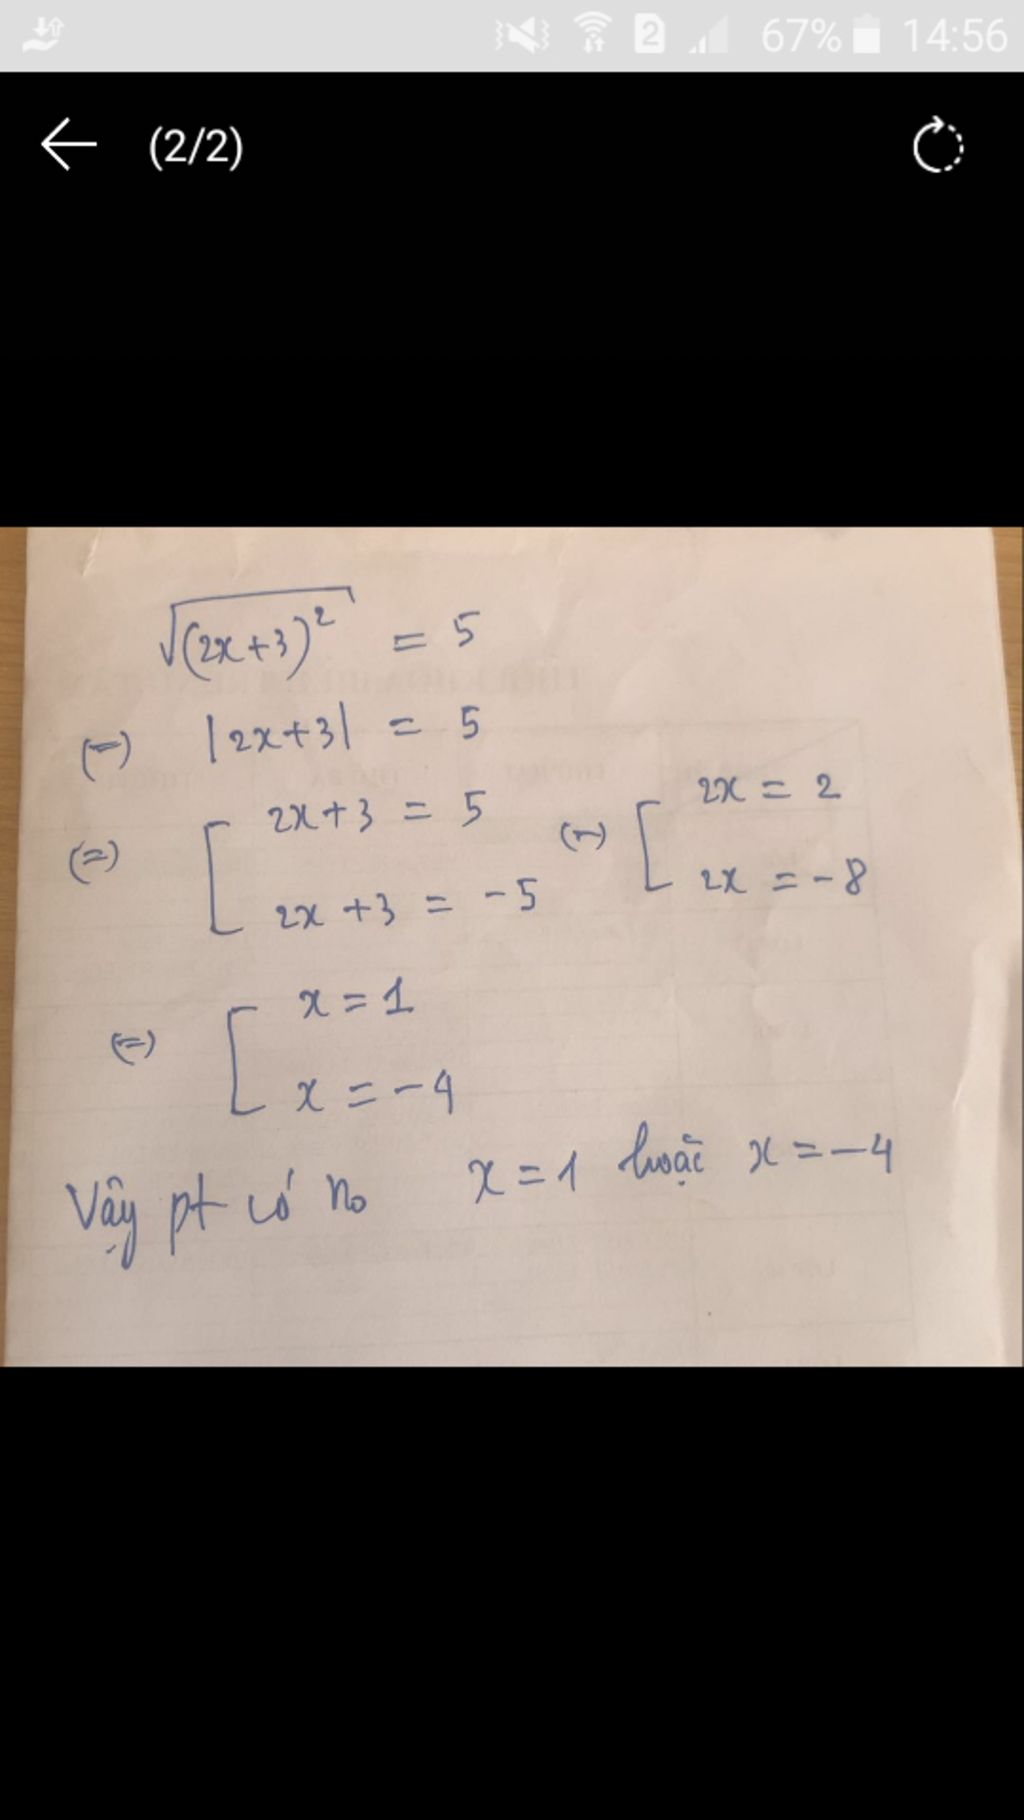 67% 14:56
(2/2)
√(2x+3)² = 5
(=) |2x+3| = 5
(=) [ 2x+3 = 5 (=) [ 2x = 2
2x+3 = -5 2x = -8
(=) [ x = 1
x = -4
Vậy pt có no x = 1 hoặc x = -4